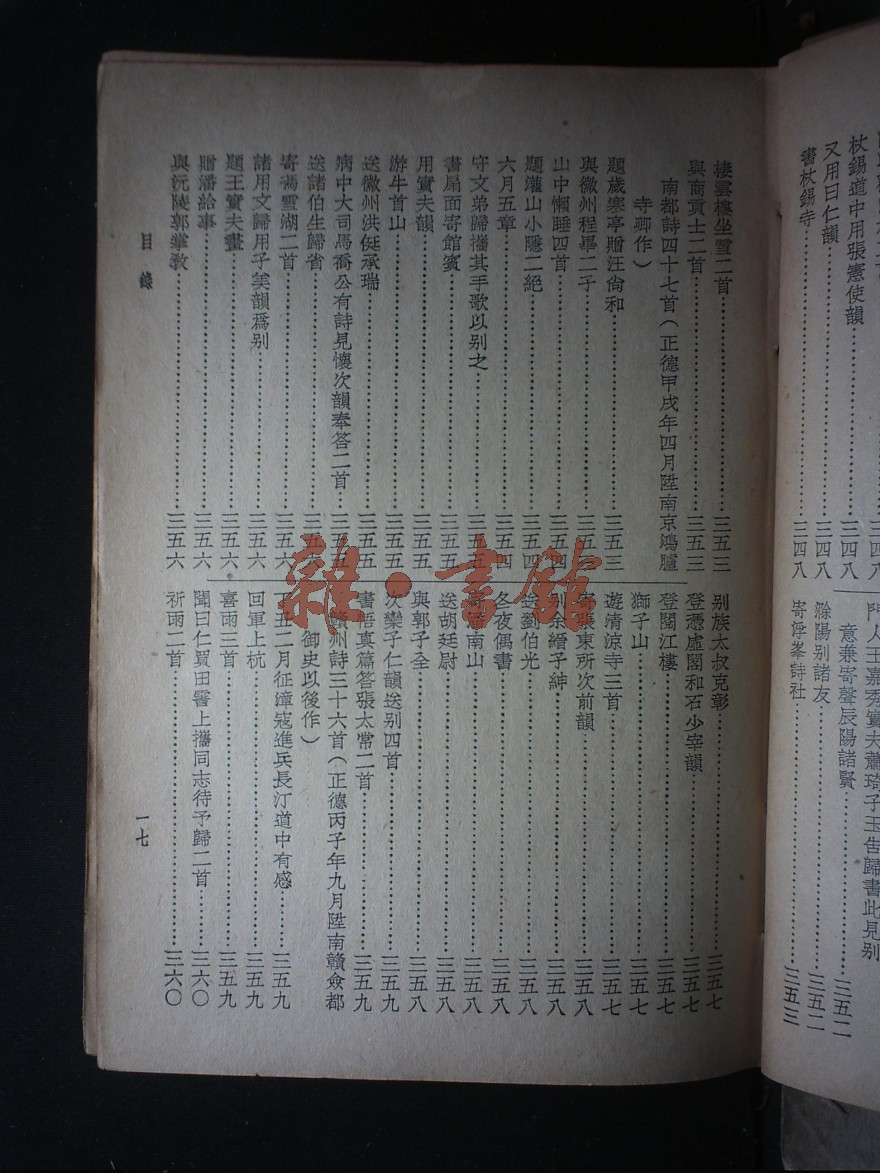 杖錫道中用張憲使韻……三四八
又用曰仁韻……三四八
書杖錫寺……三四八
門人王嘉秀實夫蕭琦子玉告歸書此見別
意兼寄聲辰陽諸賢……三五二
滁陽別諸友……三五二
寄浮峯詩社……三五三
棲雲樓坐雪二首……三五三
與商貢士二首……三五三
南都詩四十七首（正德甲戌年四月陞南京鴻臚
寺卿作）
題歲寒亭贈汪尙和……三五三
與徽州程畢二子……三五三
山中懶睡四首……三五四
題灌山小隱二絕……三五四
六月五章……三五四
守文弟歸攜其手歌以别之……三五五
書扇面寄館賓……三五五
用實夫韻……三五五
游牛首山……三五五
送徽州洪侹承瑞……三五五
病中大司馬喬公有詩見懷次韻奉答二首……三五五
送諸伯生歸省……三五六
寄馮雪湖二首……三五六
諸用文歸用子美韻爲别……三五六
題王實夫畫……三五六
贈潘給事……三五六
與沅陵郭掌敎……三五六
别族太叔克彰……三五七
登憑虛閣和石少宰韻……三五七
登閱江樓……三五七
獅子山……三五七
遊清涼寺三首……三五七
張東所次前韻……三五八
别余縉子紳……三五八
送劉伯光……三五八
冬夜偶書……三五八
南山……三五八
送胡廷尉……三五八
與郭子全……三五八
次欒子仁韻送别四首……三五九
書悟真篇答張太常二首……三五九
贛州詩三十六首（正德丙子年九月陞南贛僉都
御史以後作）
丁丑二月征漳寇進兵長汀道中有感……三五九
回軍上杭……三五九
喜雨三首……三五九
聞曰仁買田霅上攜同志待予歸二首……三六〇
祈雨二首……三六〇
目錄
一七
雜·書館